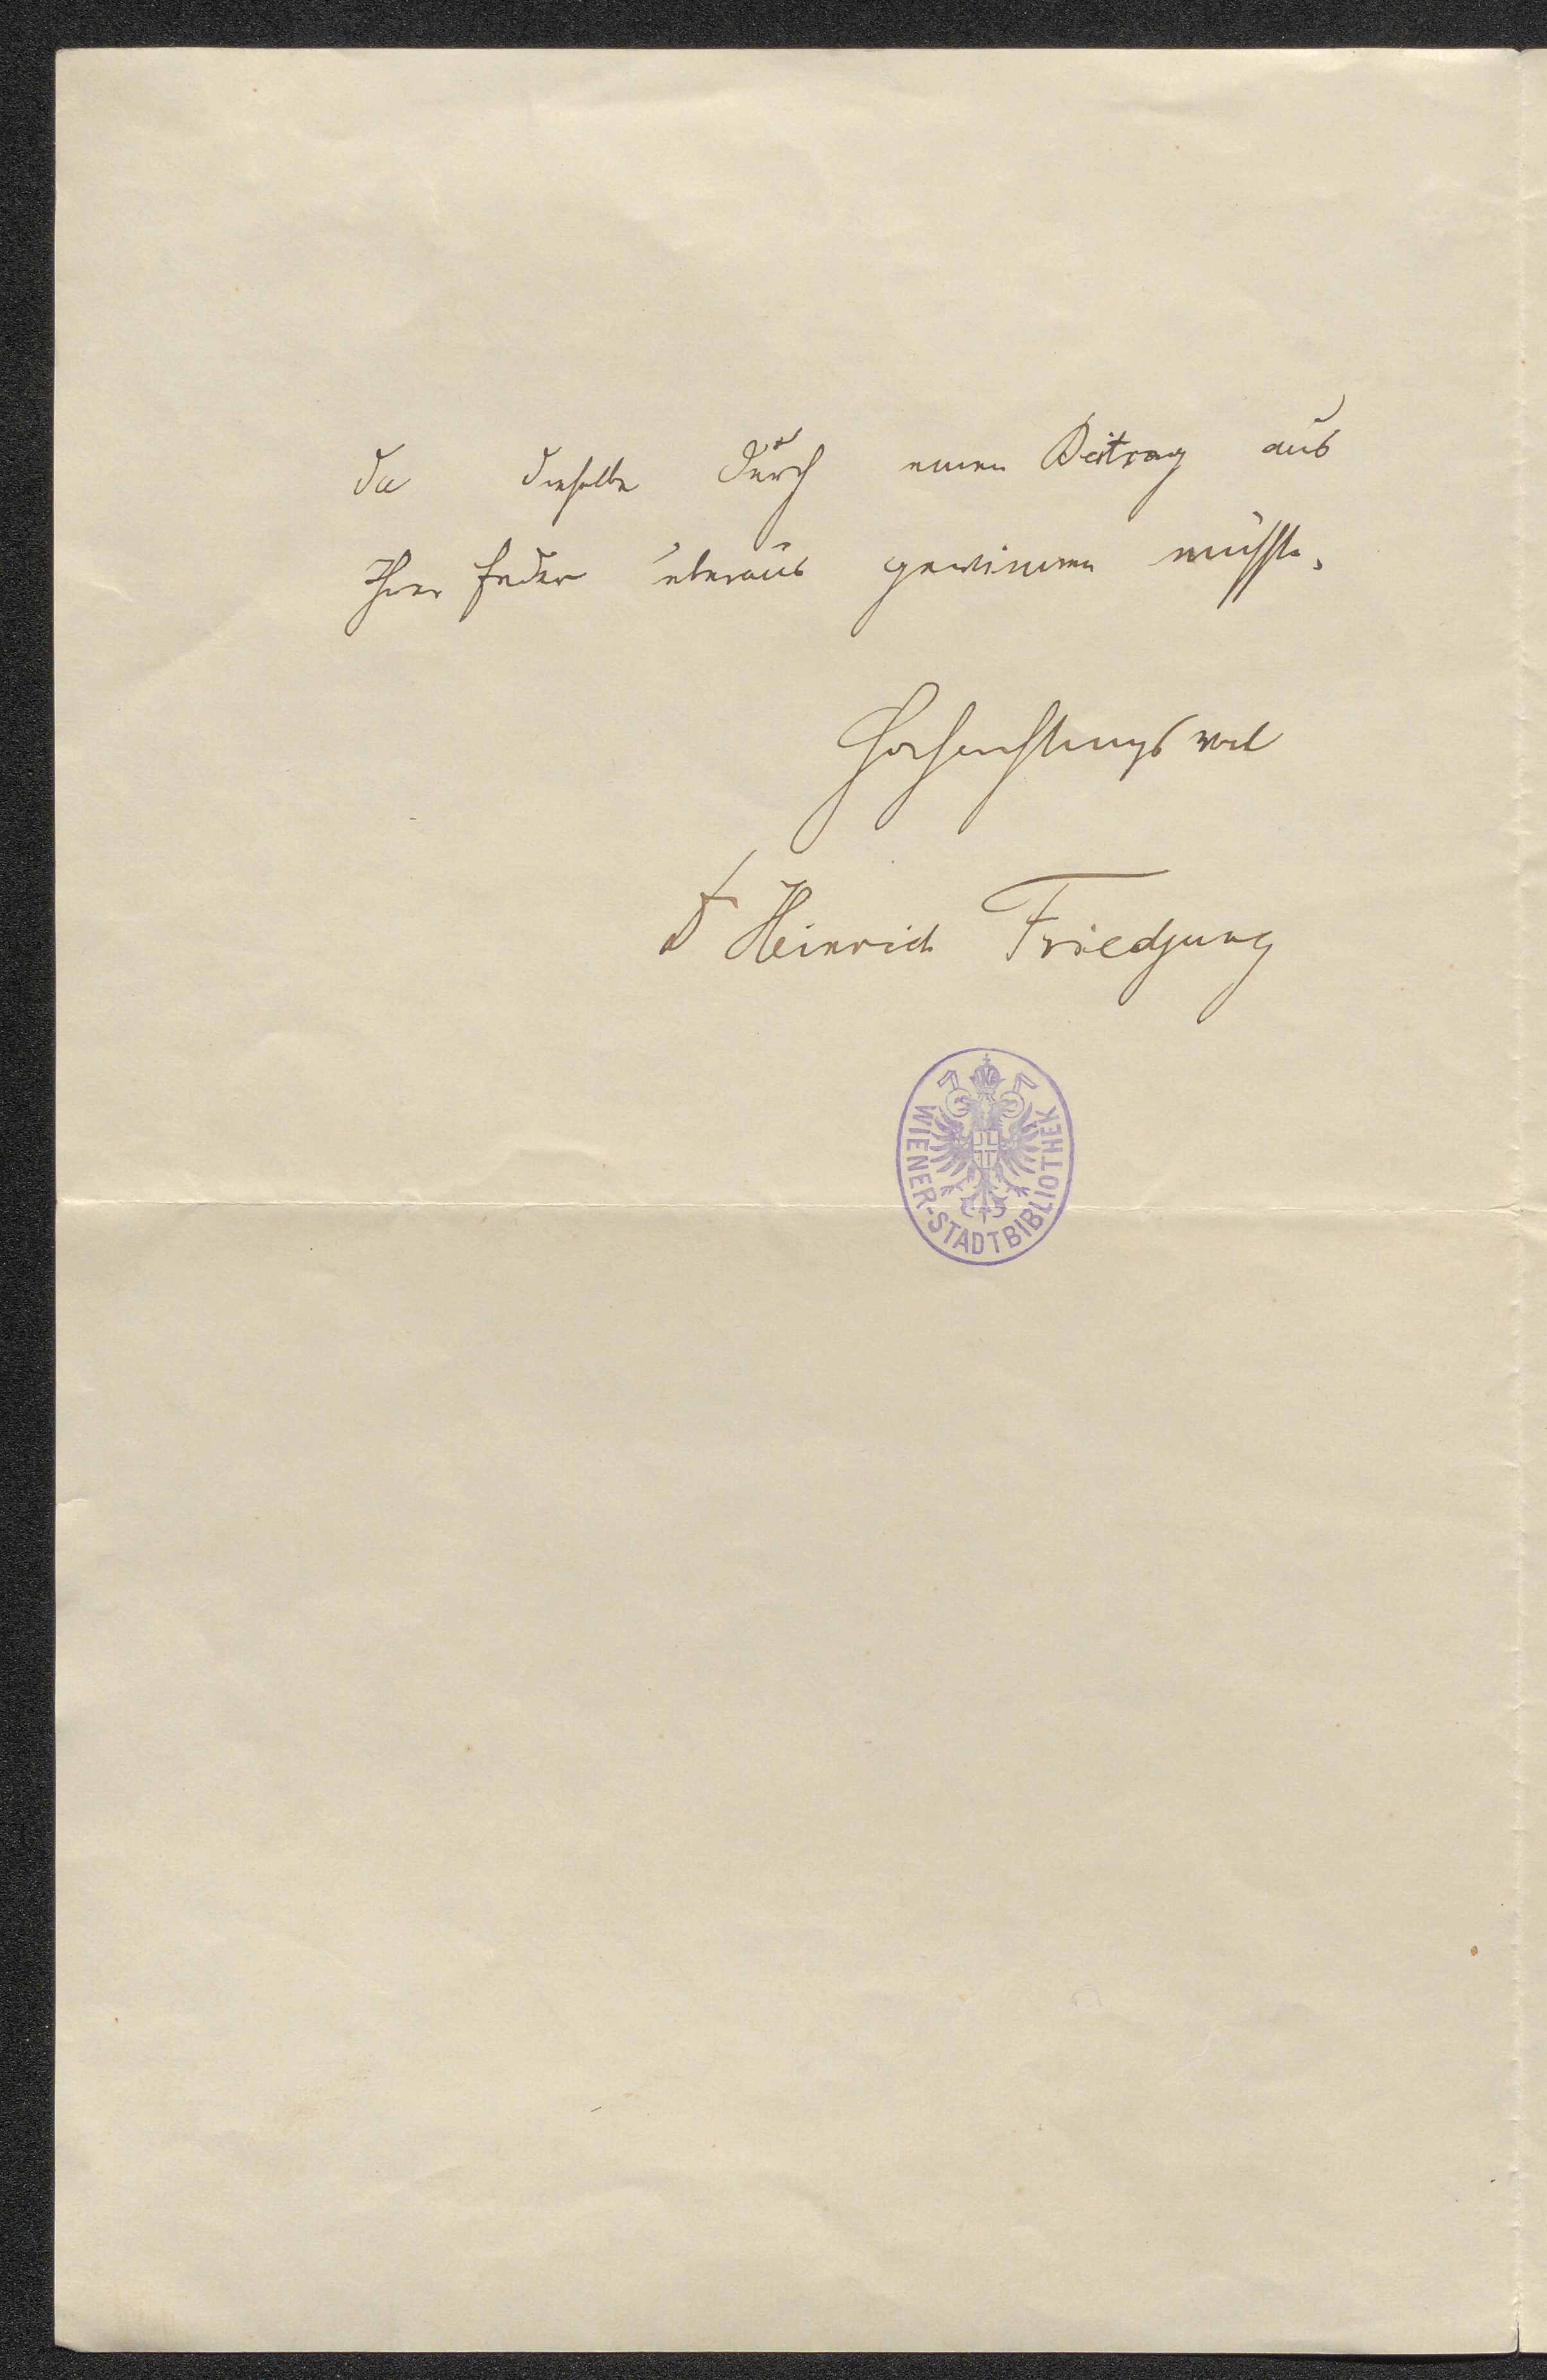 da dieselbe durch einen Beitrag aus
Ihrer Feder überaus gewinnen müsste.
Hochachtungsvol
Dr Heinrich Friedjung
WIENER-STADTBIBLIOTHEK